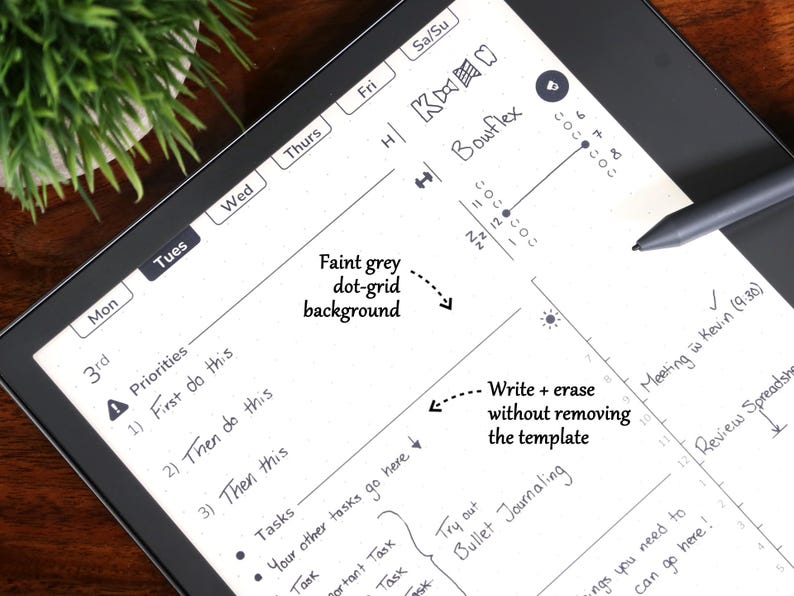 Mon
Tues
Wed
Thurs
Fri
Sa/Su
3rd
Priorities
1) First do this
2) Then do this
3) Then this
Tasks
Your other tasks go here
Task
Important Task
Task
Task
Try out
Bullet Journaling
H
Bowflex
Zzz
11
12
1
6
7
8
Faint grey
dot-grid
background
Write + erase
without removing
the template
7
8
9
10
11
12
1
2
3
4
5
Meeting w Kevin (9:30)
Review
you need to
can go here!